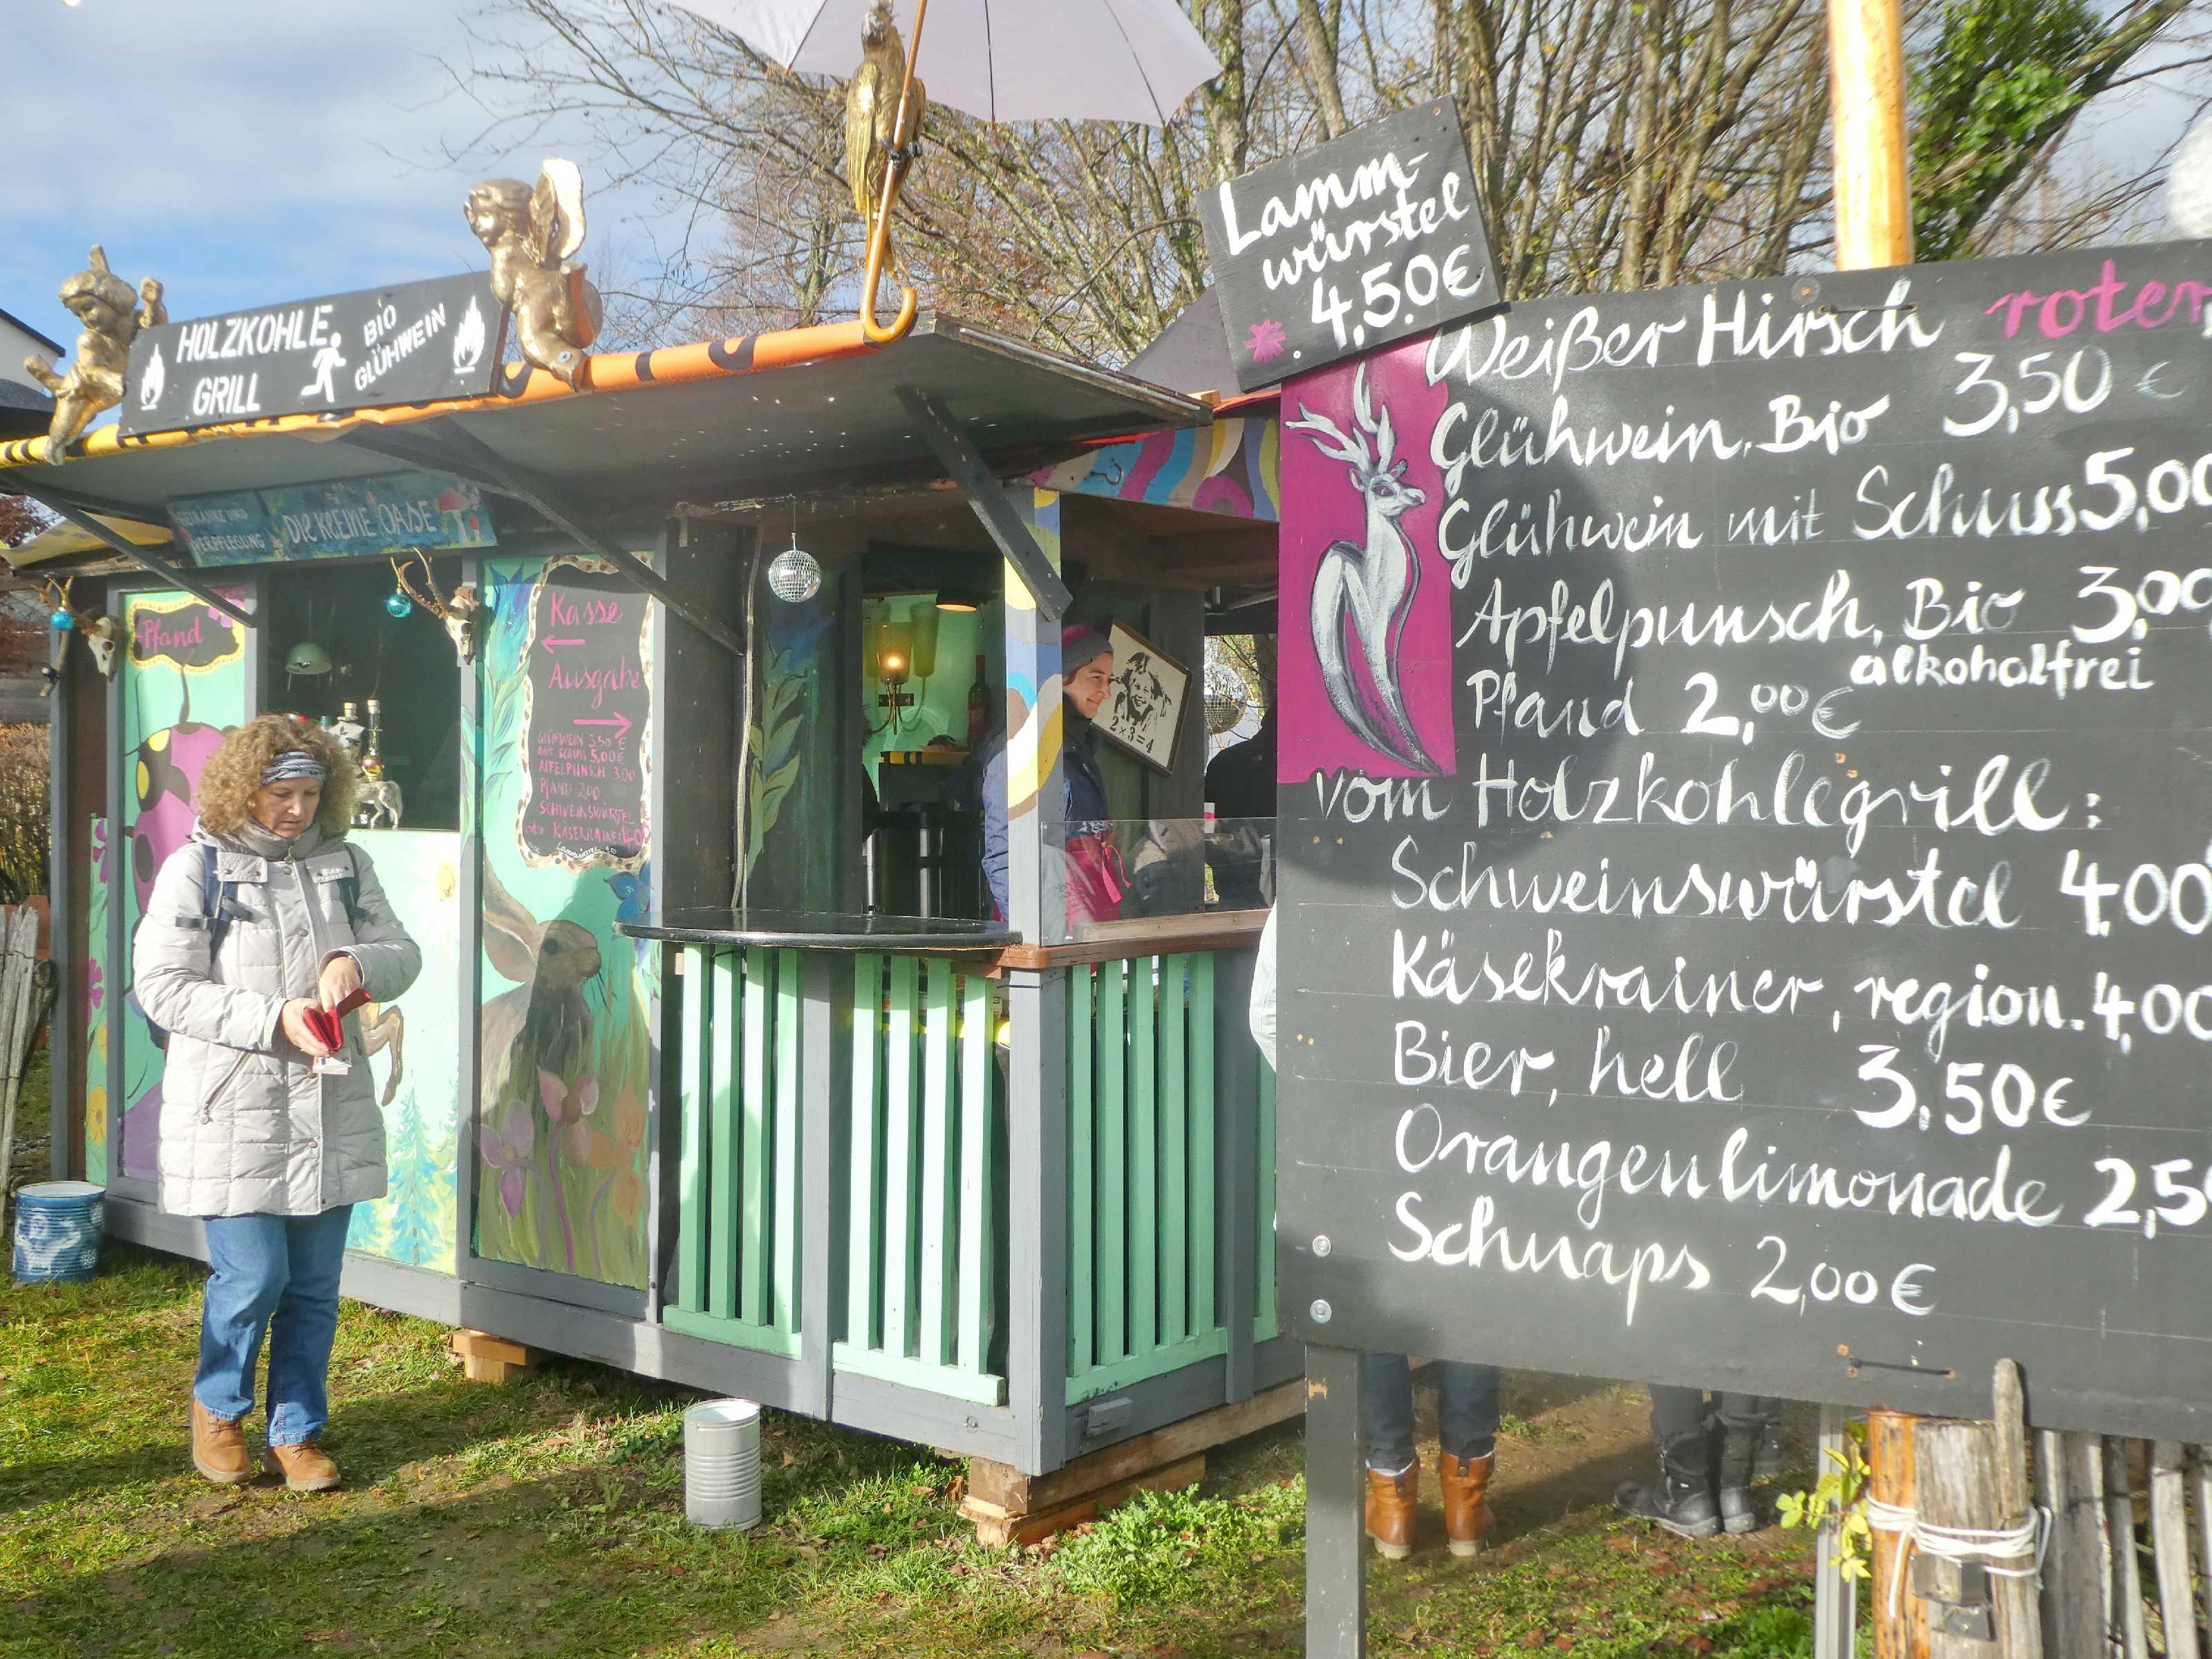 HOLZKOHLE
GRILL
BIO
GLÜHWEIN
VERPFLEGUNG
DIE KLEINE OASE
Pfand
Kasse
←
Ausgabe
→
GLÜHWEIN 3,50 €
MIT SCHUSS 5,00€
APFELPUNSCH 3,00
PFAND 2,00
SCHWEINSWÜRSTEL
2x3=4
Lamm-
würstel
4,50€
Weißer Hirsch roter
Glühwein, Bio 3,50 €
Glühwein mit Schuss 5,00
Apfelpunsch, Bio 3,00
alkoholfrei
Pfand 2,00€
vom Holzkohlegrill:
Schweinswürstel 4,00
Käsekrainer, region. 4,00
Bier, hell 3,50€
Orangenlimonade 2,5
Schnaps 2,00€